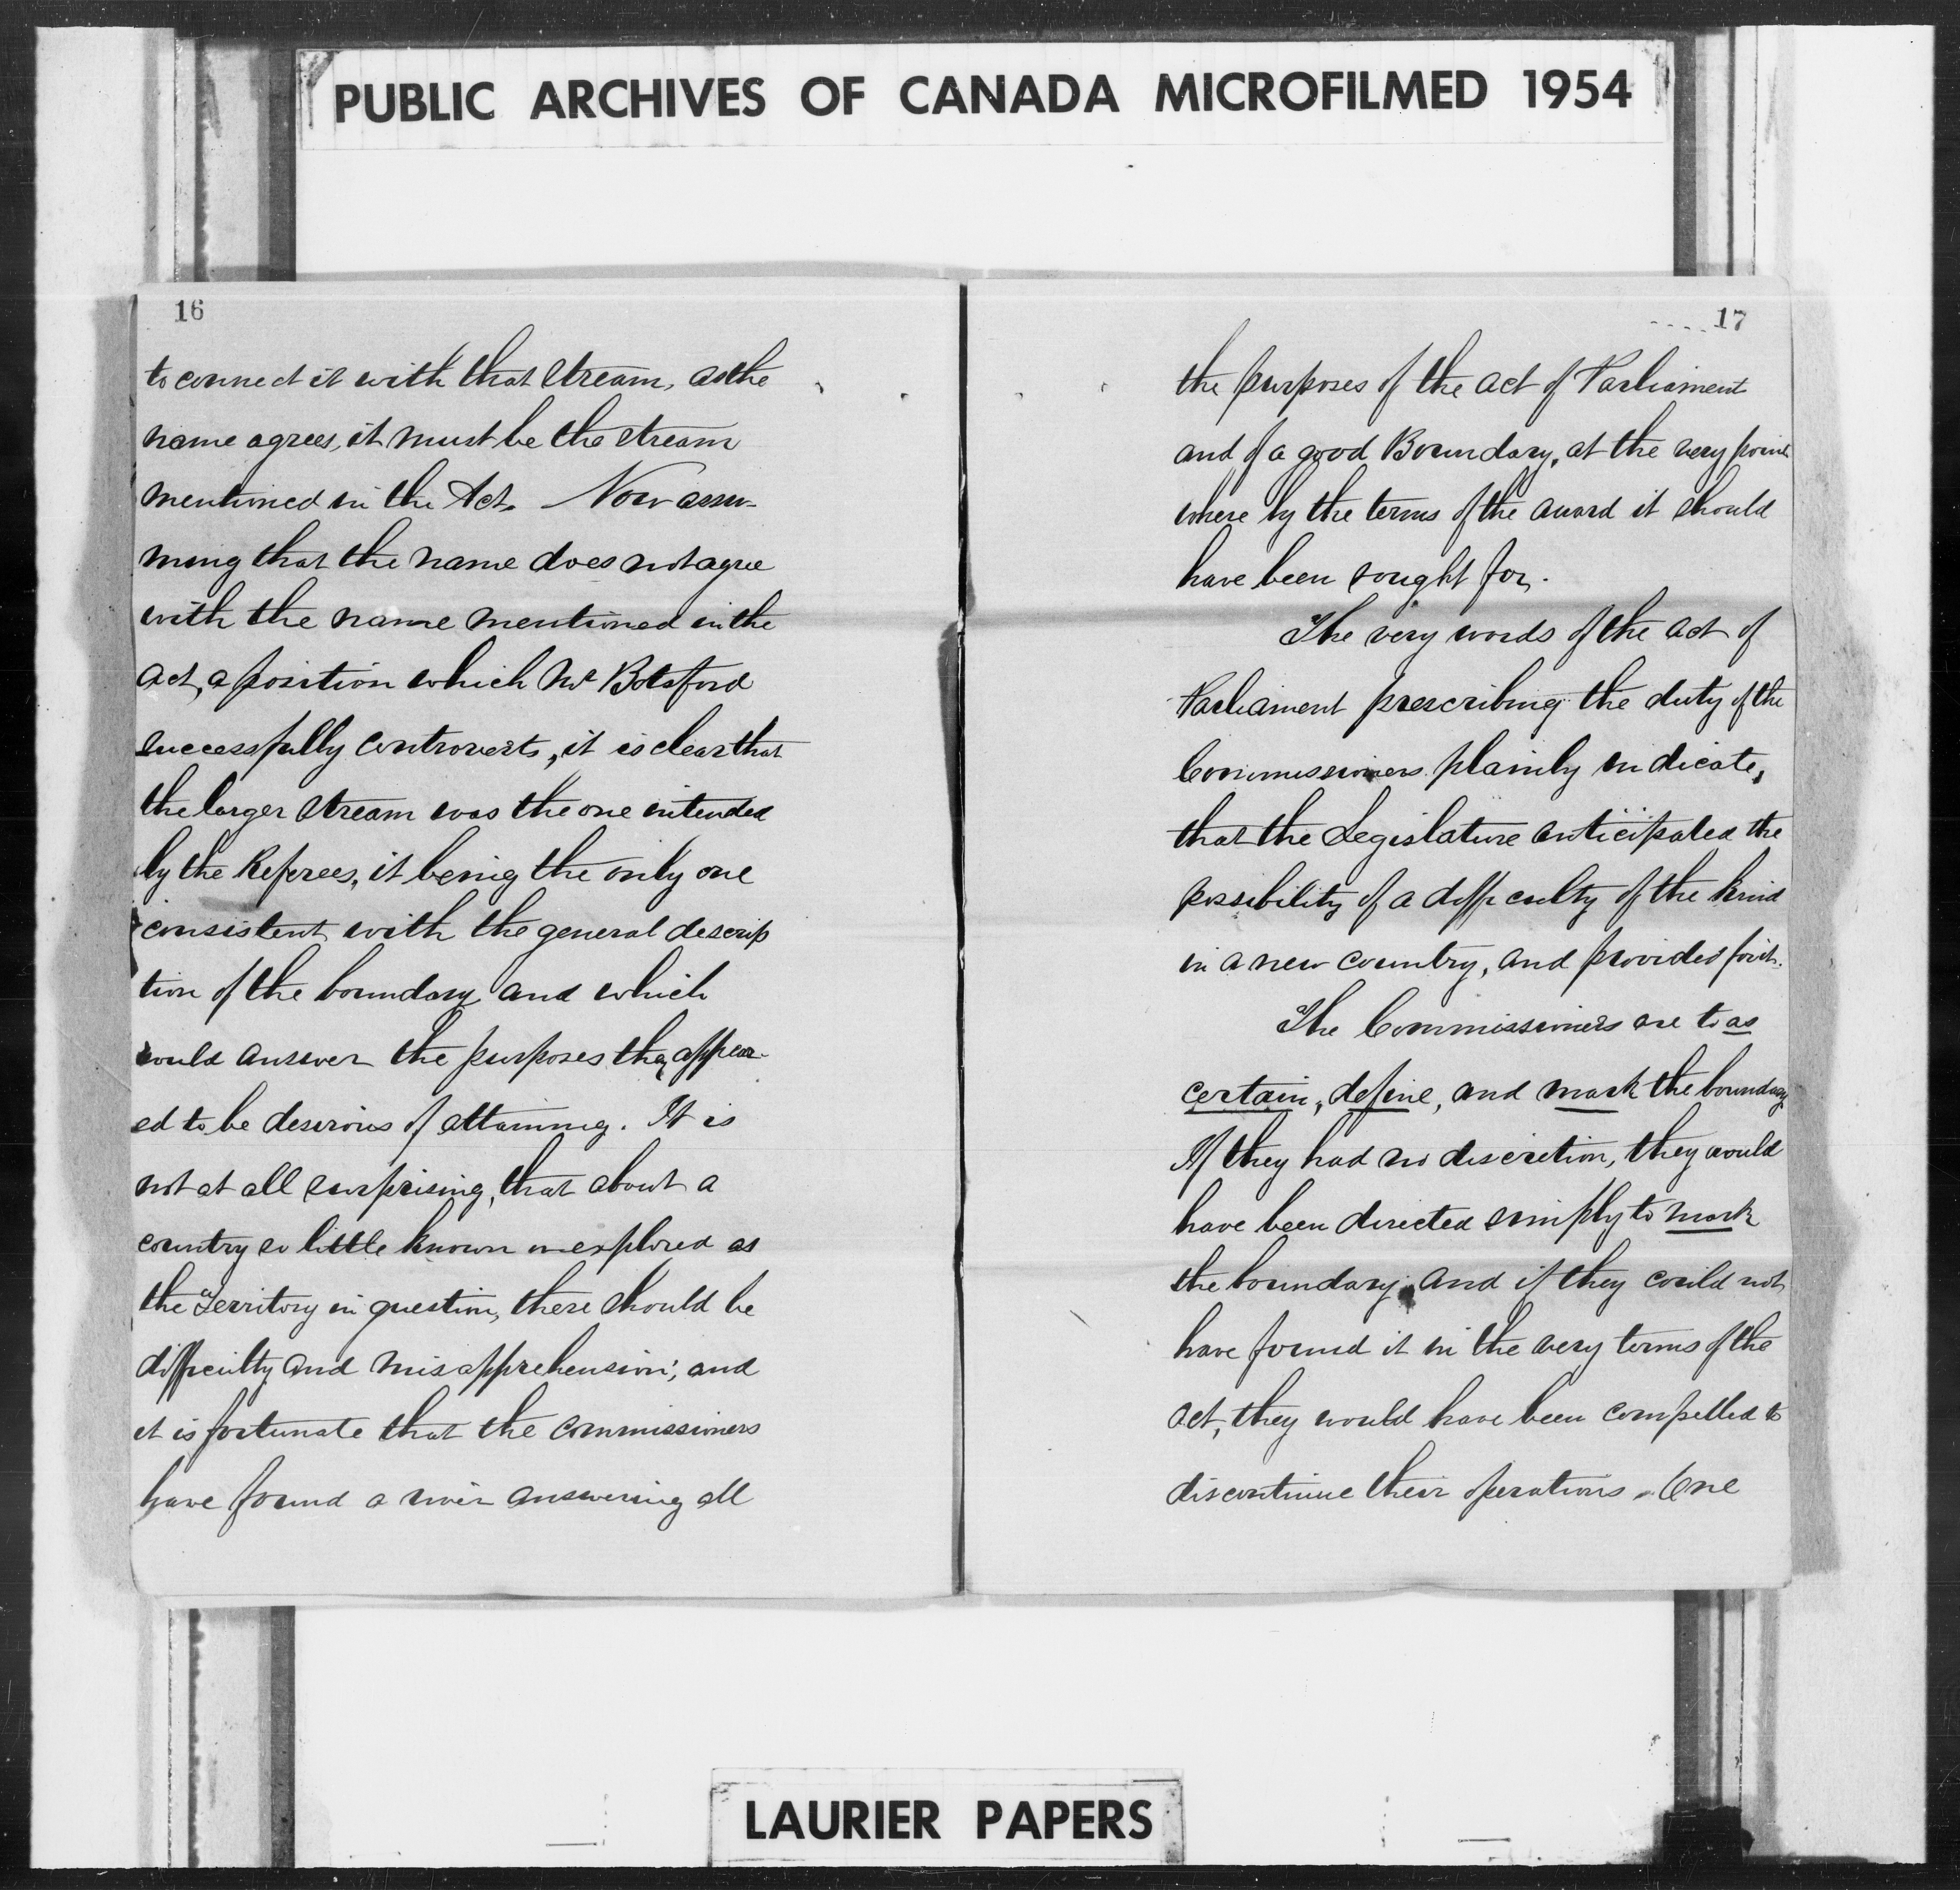 PUBLIC ARCHIVES OF CANADA MICROFILMED 1954
16
to connect it with that stream, as the
name agrees, it must be the stream
mentioned in the Act. Now assu-
ming that the name does not agree
with the name mentioned in the
act, a position which Mr Botsford
successfully controverts, it is clear that
the larger stream was the one intended
by the Referees, it being the only one
consistent with the general descrip
tion of the boundary and which
would answer the purposes they appear-
ed to be desirous of attaining. It is
not at all surprising, that about a
country so little known or explored as
the Territory in question, there should be
difficulty and misapprehension; and
it is fortunate that the commissioners
have found a river answering all
17
the purposes of the act of Parliament
and of a good Boundary, at the very point
where by the terms of the award it should
have been sought for.
The very words of the act of
Parliament prescribing the duty of the
Commissioners plainly indicate,
that the Legislature anticipated the
possibility of a difficulty of the kind
in a new country, and provided for it.
The Commissioners are to as
certain, define, and mark the boundary.
If they had no discretion, they would
have been directed simply to mark
the boundary, and if they could not
have found it in the very terms of the
act, they would have been compelled to
discontinue their operations. One
LAURIER PAPERS